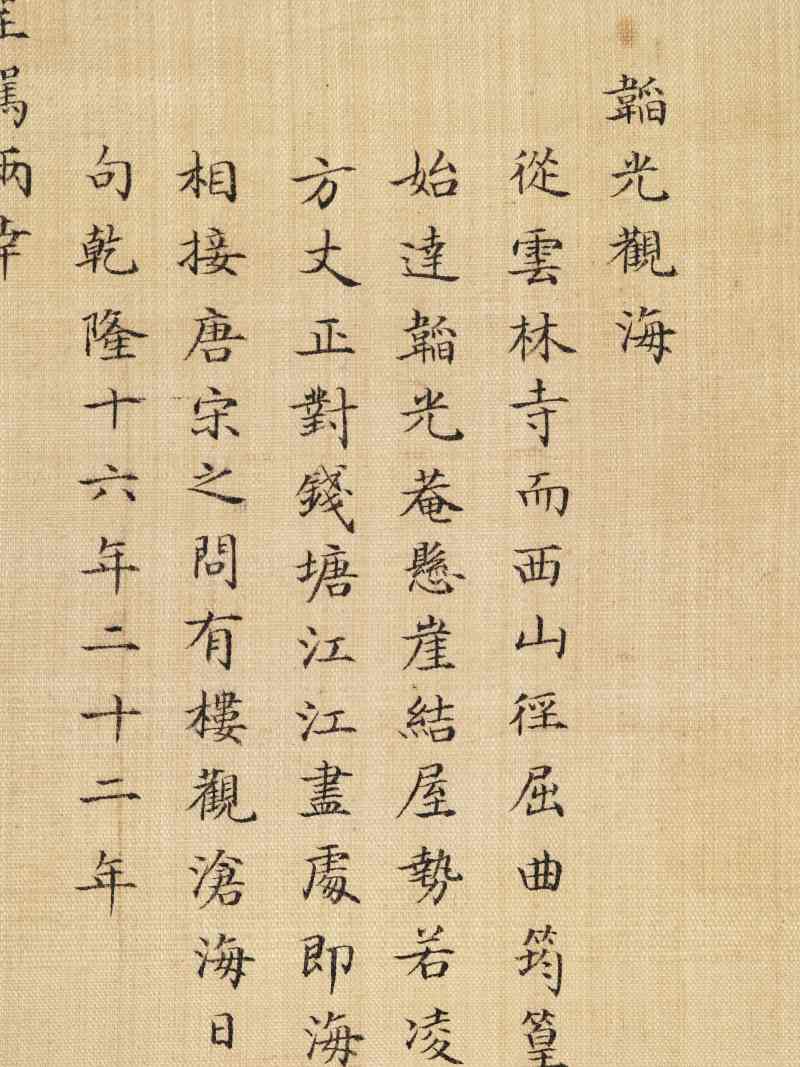 韜光觀海
從雲林寺而西山徑屈曲筠篁
始達韜光菴懸崖結屋勢若凌
方丈正對錢塘江江盡處即海
相接唐宋之問有樓觀滄海日
句乾隆十六年二十二年
兩幸